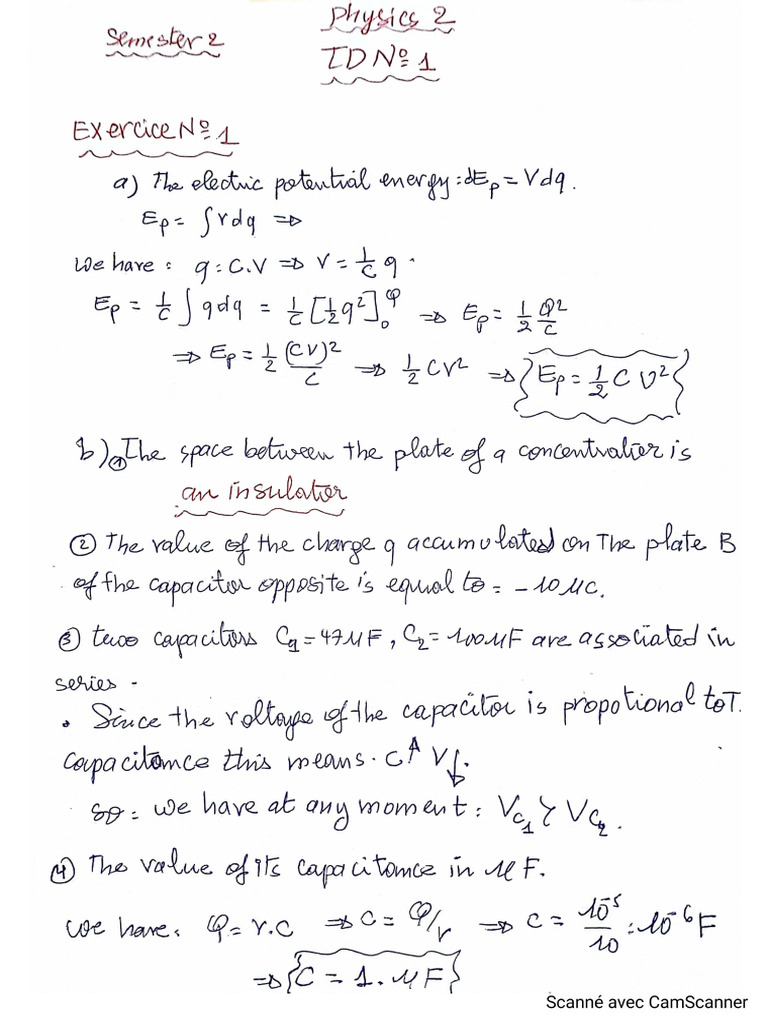 Semester 2
Physics 2
TD Nº 1
Exercice Nº 1
a) The electric potential energy : dEp = V dq.
Ep = ∫ V dq ⇒
We have : q = C.V ⇒ V = 1/C q.
Ep = 1/C ∫ q dq = 1/C [1/2 q²]₀^Q ⇒ Ep = 1/2 Q²/C
⇒ Ep = 1/2 (CV)²/C ⇒ 1/2 CV² ⇒ {Ep = 1/2 C V²}
b) ① The space between the plate of a concentratier is
an insulator
② The value of the charge q accumulated on The plate B
of the capacitor opposite is equal to = -10 μC.
③ two capacitors C₁ = 47μF, C₂ = 100μF are associated in
series -
• Since the voltage of the capacitor is propotional to T.
capacitance this means. C↑ V↓.
so = we have at any moment : Vc₁ > Vc₂.
④ The value of its capacitance in μF.
We have : Q = V.C ⇒ C = Q/V ⇒ C = 10⁻⁵/10 : 10⁻⁶ F
⇒ {C = 1. μF}
Scanné avec CamScanner